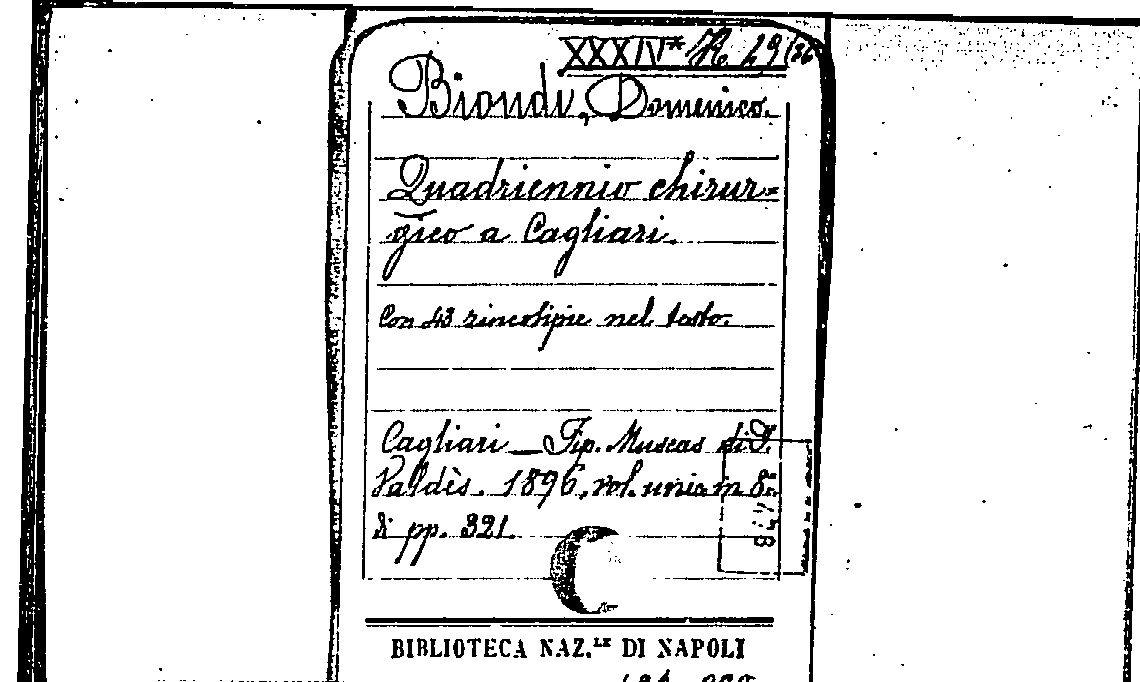 XXXIV* 
Biondi, Domenico.
Quadriennio chirur=
gico a Cagliari.
Con 43 zincotipie nel testo.
Cagliari — Tip. Muscas di P.
Valdès. 1896, vol. unic. in 8º
di pp. 321.
BIBLIOTECA NAZ.LE DI NAPOLI